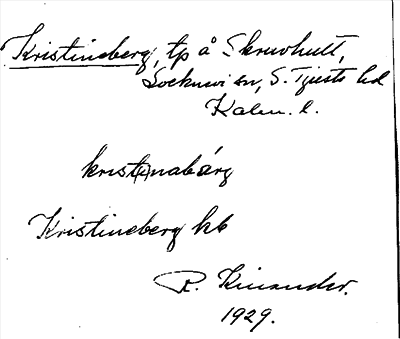 Kristineberg, tp å Skruvhult,
Locknevi sn, S. Tjusts hd
Kalm. l.
krist(i)nabárg
Kristineberg kb
R. Kinander.
1929.